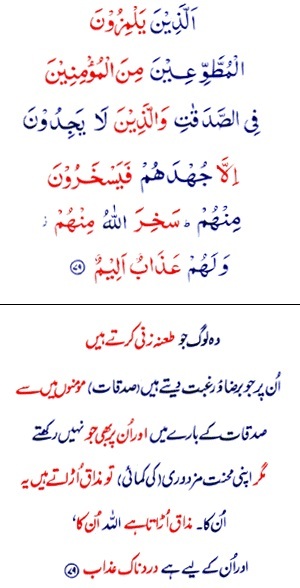 اَلَّذِیْنَ یَلْمِزُوْنَ
الْمُطَّوِّعِیْنَ مِنَ الْمُؤْمِنِیْنَ
فِی الصَّدَقٰتِ وَالَّذِیْنَ لَا یَجِدُوْنَ
اِلَّا جُهْدَهُمْ فَیَسْخَرُوْنَ
مِنْهُمْ ؕ سَخِرَ اللّٰهُ مِنْهُمْ ؗ
وَلَهُمْ عَذَابٌ اَلِیْمٌ ﴿۷۹﴾
وہ لوگ جو طعنہ زنی کرتے ہیں
اُن پر جو برضا و رغبت دیتے ہیں (صدقات) مؤمنوں میں سے
صدقات کے بارے میں اور اُن پر بھی جو نہیں رکھتے
مگر اپنی محنت مزدوری (کی کمائی) تو مذاق اُڑاتے ہیں یہ
اُن کا۔ مذاق اُڑاتا ہے اللہ اُن کا،
اور اُن کے لیے ہے دردناک عذاب ﴿۷۹﴾